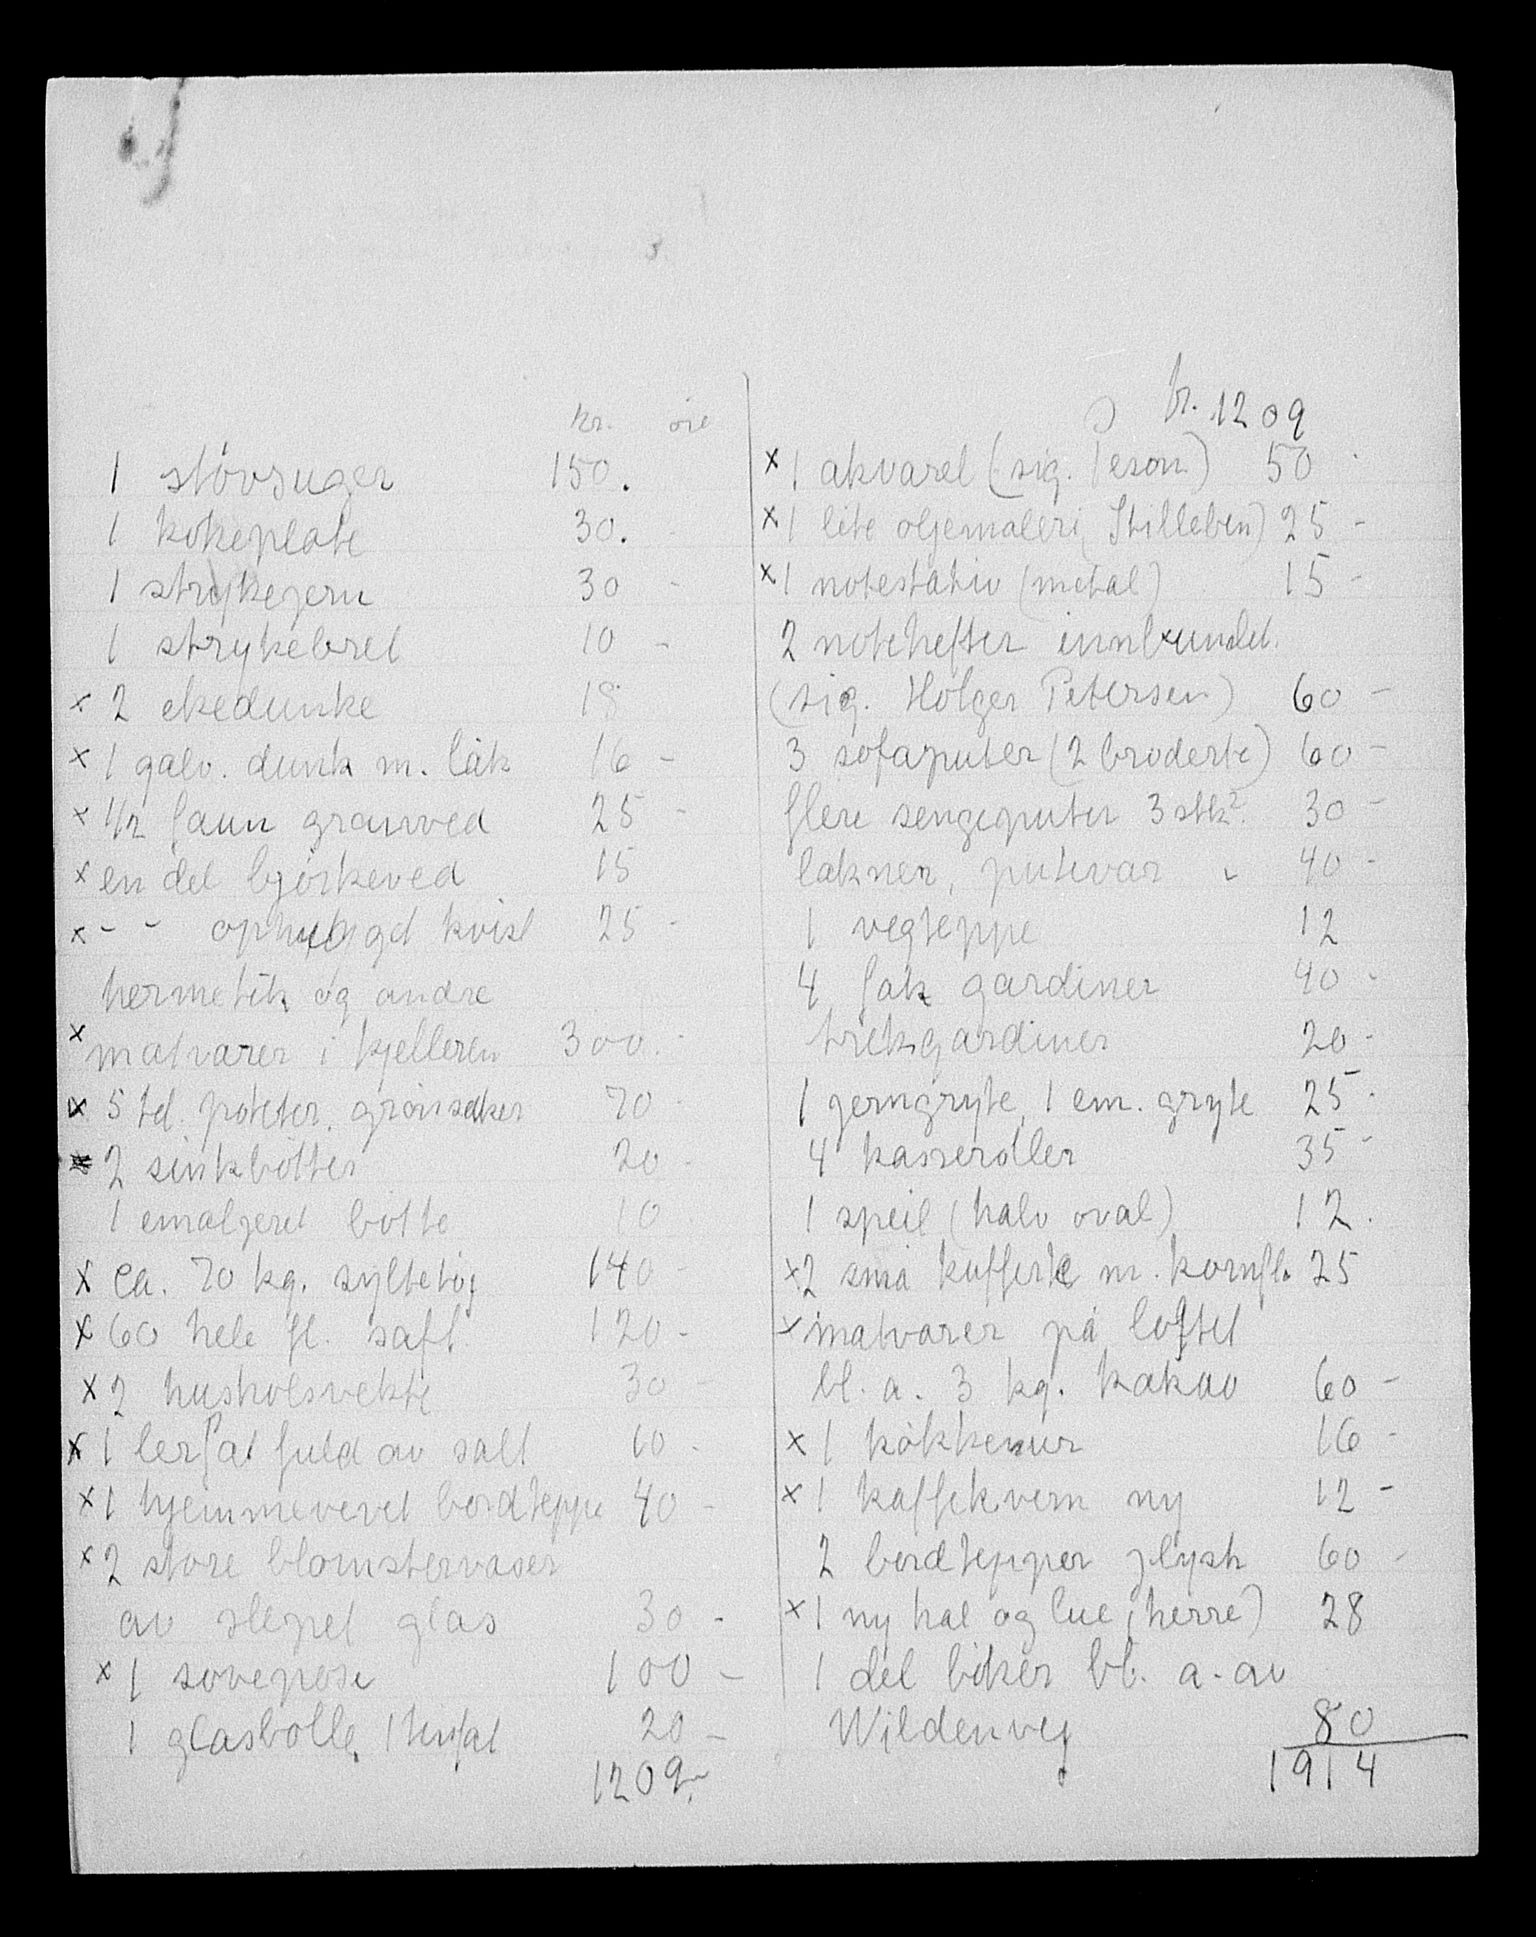 kr. øre
1 støvsuger 150.
1 kokeplate 30.
1 strykejern 30 -
1 strykebret 10 -
x 2 ekedunke 18
x 1 galv. dunk m. låk 16 -
x 1/2 favn granved 25 -
x en del bjørkeved 15
x - - ophugget kvist 25 -
hermetik og andre
x matvarer i kjelleren 300. -
x 5 td. poteter, grønsaker 70 -
x 2 sinkbøtter 20 -
1 emaljeret bøtte 10
x Ca. 70 kg. syltetøj 140 -
x 60 hele fl. saft. 120 -
x 2 husholsvekte 30 -
x 1 lerfat fuld av salt 10 -
x 1 hjemmevevet bordteppe 40 -
x 2 store blomstervaser
av slepet glas 30 -
x 1 sovepose 100 -
1 glasbolle, 1 20 -
1209.-
kr. 1209
x 1 akvarel (sig. ) 50 -
x 1 lite oljemaleri (Stilleben) 25 -
x 1 notestativ (metal) 15 -
2 notehefter innbundet.
(sig. Holger Petersen) 60 -
3 sofaputer (2 broderte) 60 -
flere sengeputer 3 stk. 30 -
lakner, putevar 40 -
1 vegteppe 12
4 fak gardiner 40 -
trekgardiner 20 -
1 jerngryte, 1 em. gryte 25 -
4 kasseroller 35 -
1 speil (halv oval) 12.
x 2 små kufferte m. kornfl. 25
x matvarer på loftet
bl. a. 3 kg. kakao 60 -
x 1 kökkenur 16 -
x 1 kaffekvern ny 12 -
2 bordtepper plysh 60 -
x 1 ny hat og lue (herre) 28
1 del bøker bl. a. av
Wildenvej 80
1914